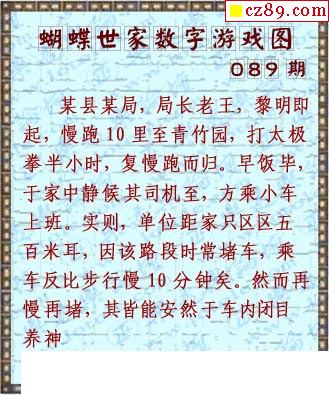 cz89.com
蝴蝶世家数字游戏图
089 期
某县某局，局长老王，黎明即
起，慢跑 10 里至青竹园，打太极
拳半小时，复慢跑而归。早饭毕，
于家中静候其司机至，方乘小车
上班。实则，单位距家只区区五
百米耳，因该路段时常堵车，乘
车反比步行慢 10 分钟矣。然而再
慢再堵，其皆能安然于车内闭目
养神